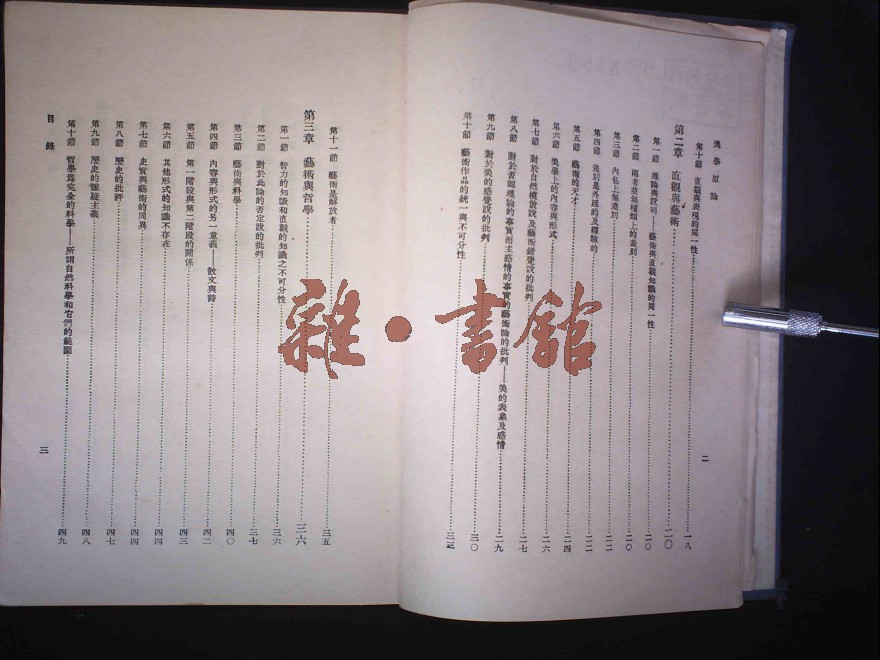 美學原論
第十節 直觀與表現的同一性 一八
第二章 直觀與藝術 二〇
第一節 推論與說明——藝術與直觀知識的同一性 二〇
第二節 兩者並無種類上的差別 二〇
第三節 內包上無差別 二二
第四節 差別是外延的及經驗的 二二
第五節 藝術的天才 二四
第六節 美學上的內容與形式 二六
第七節 對於自然模倣說及藝術錯覺說的批判 二七
第八節 對於否認理論的事實而主感情的事實的藝術論的批判——美的表象及感情 二九
第九節 對於美的感覺說的批判 三〇
第十節 藝術作品的統一與不可分性
二
第十一節 藝術是解放者 三五
第三章 藝術與哲學 三六
第一節 智力的知識和直觀的知識之不可分性 三六
第二節 對於此論的否定說的批判 三七
第三節 藝術與科學 四〇
第四節 內容與形式的另一意義——散文與詩 四二
第五節 第一階段與第二階段的關係 四三
第六節 其他形式的知識不存在 四四
第七節 史實與藝術的同異 四四
第八節 歷史的批評 四七
第九節 歷史的懷疑主義 四八
第十節 哲學爲完全的科學——所謂自然科學和它們的範圍 四九
目錄
三
雜·書館